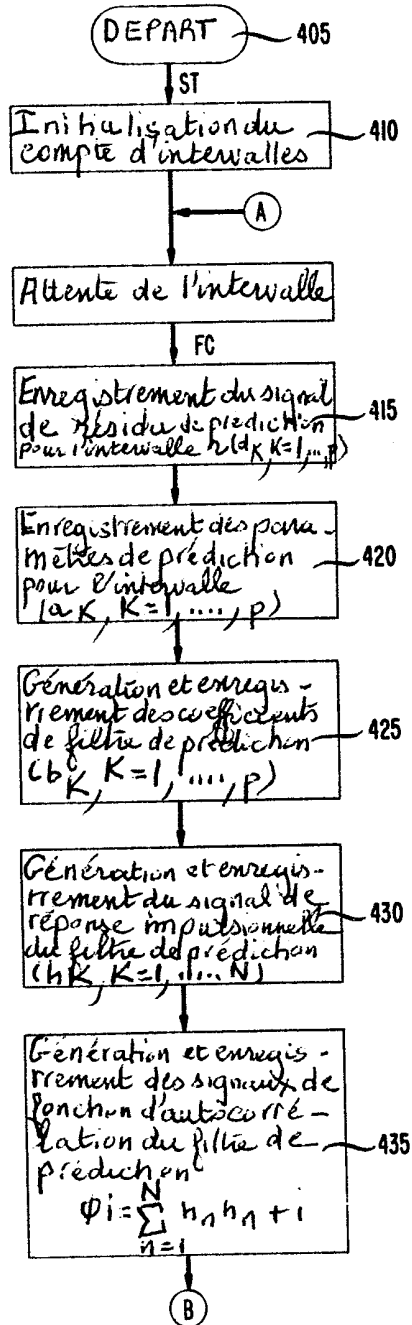 DEPART
405
ST
Initialisation du
compte d'intervalles
410
A
Attente de l'intervalle
FC
Enregistrement du signal
de résidu de prédiction
pour l'intervalle r(dK, K=1,..,p)
415
Enregistrement des para-
mètres de prédiction
pour l'intervalle
(aK, K=1,....,p)
420
Génération et enregis-
trement des coefficients
de filtre de prédiction
(bK, K=1,....,p)
425
Génération et enregis-
trement du signal de
réponse impulsionnelle
du filtre de prédiction
(hK, K=1,.....N)
430
Génération et enregis-
trement des signaux de
fonction d'autocorré-
lation du filtre de
prédiction
φi = N∑n=1 hn hn + i
435
B